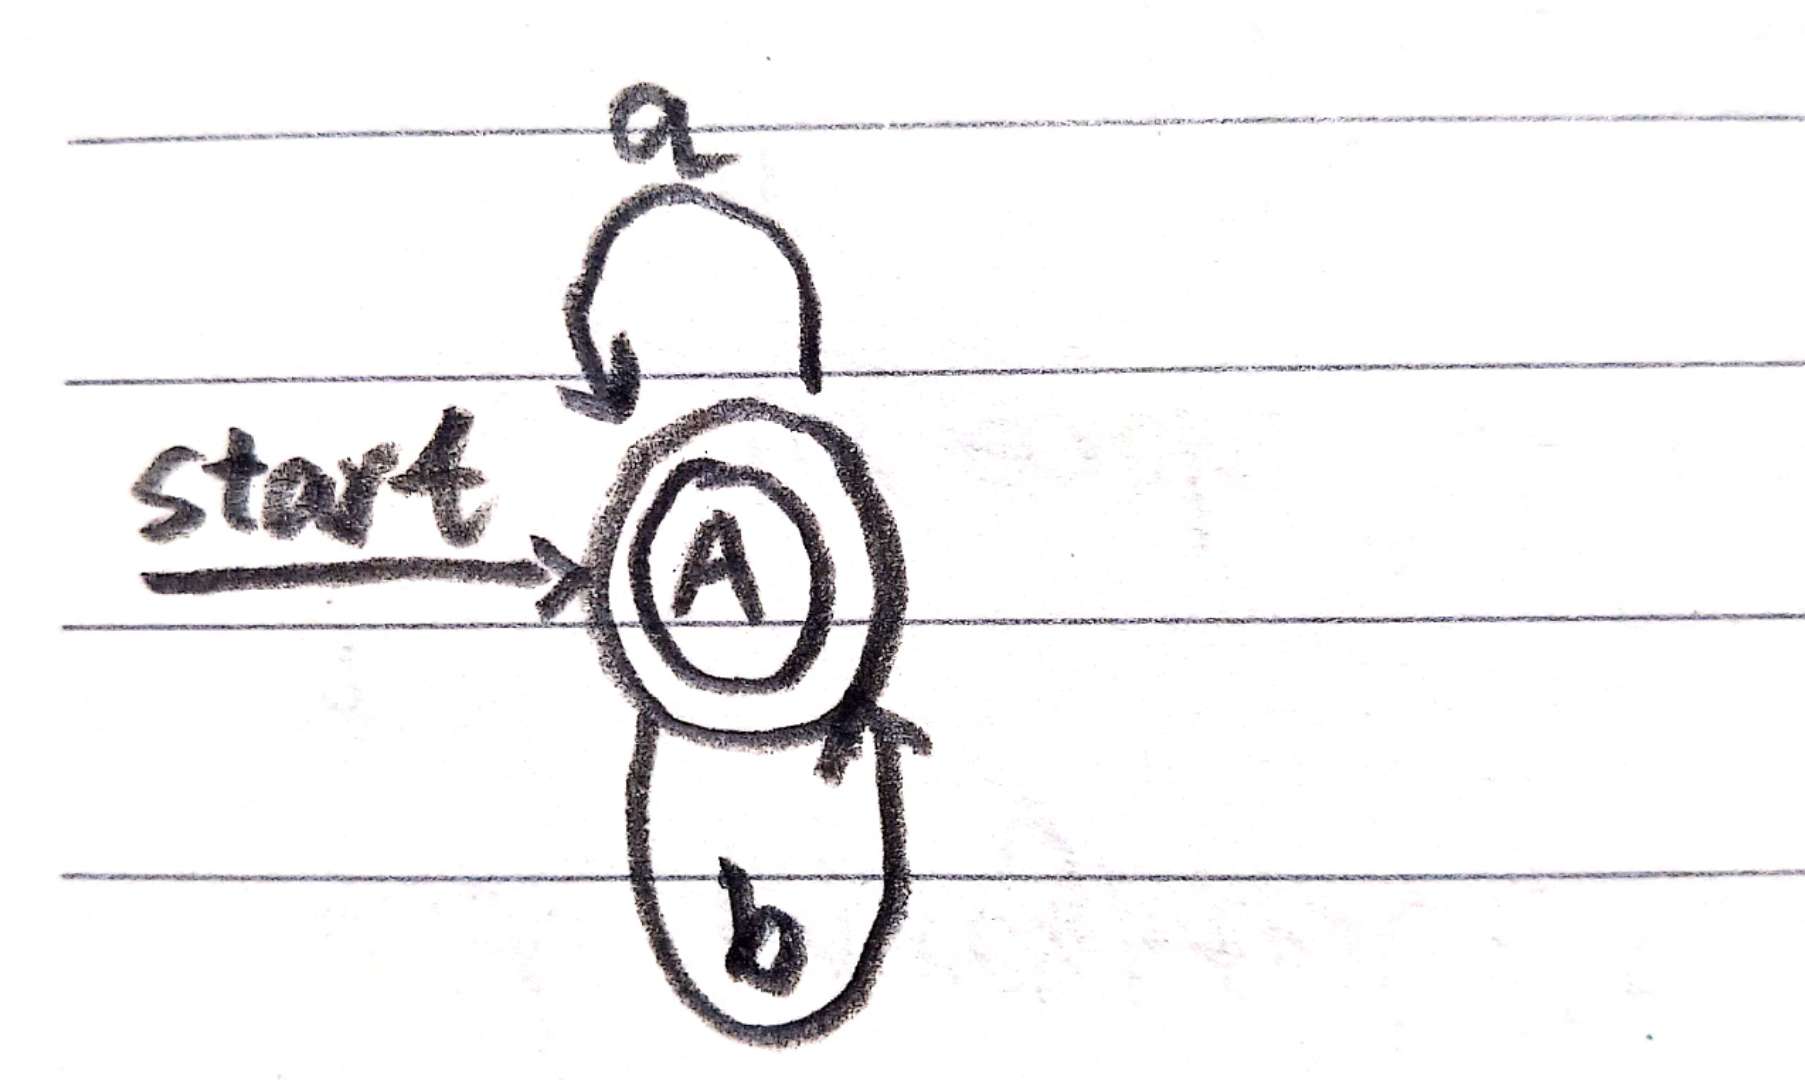 a
start
A
b